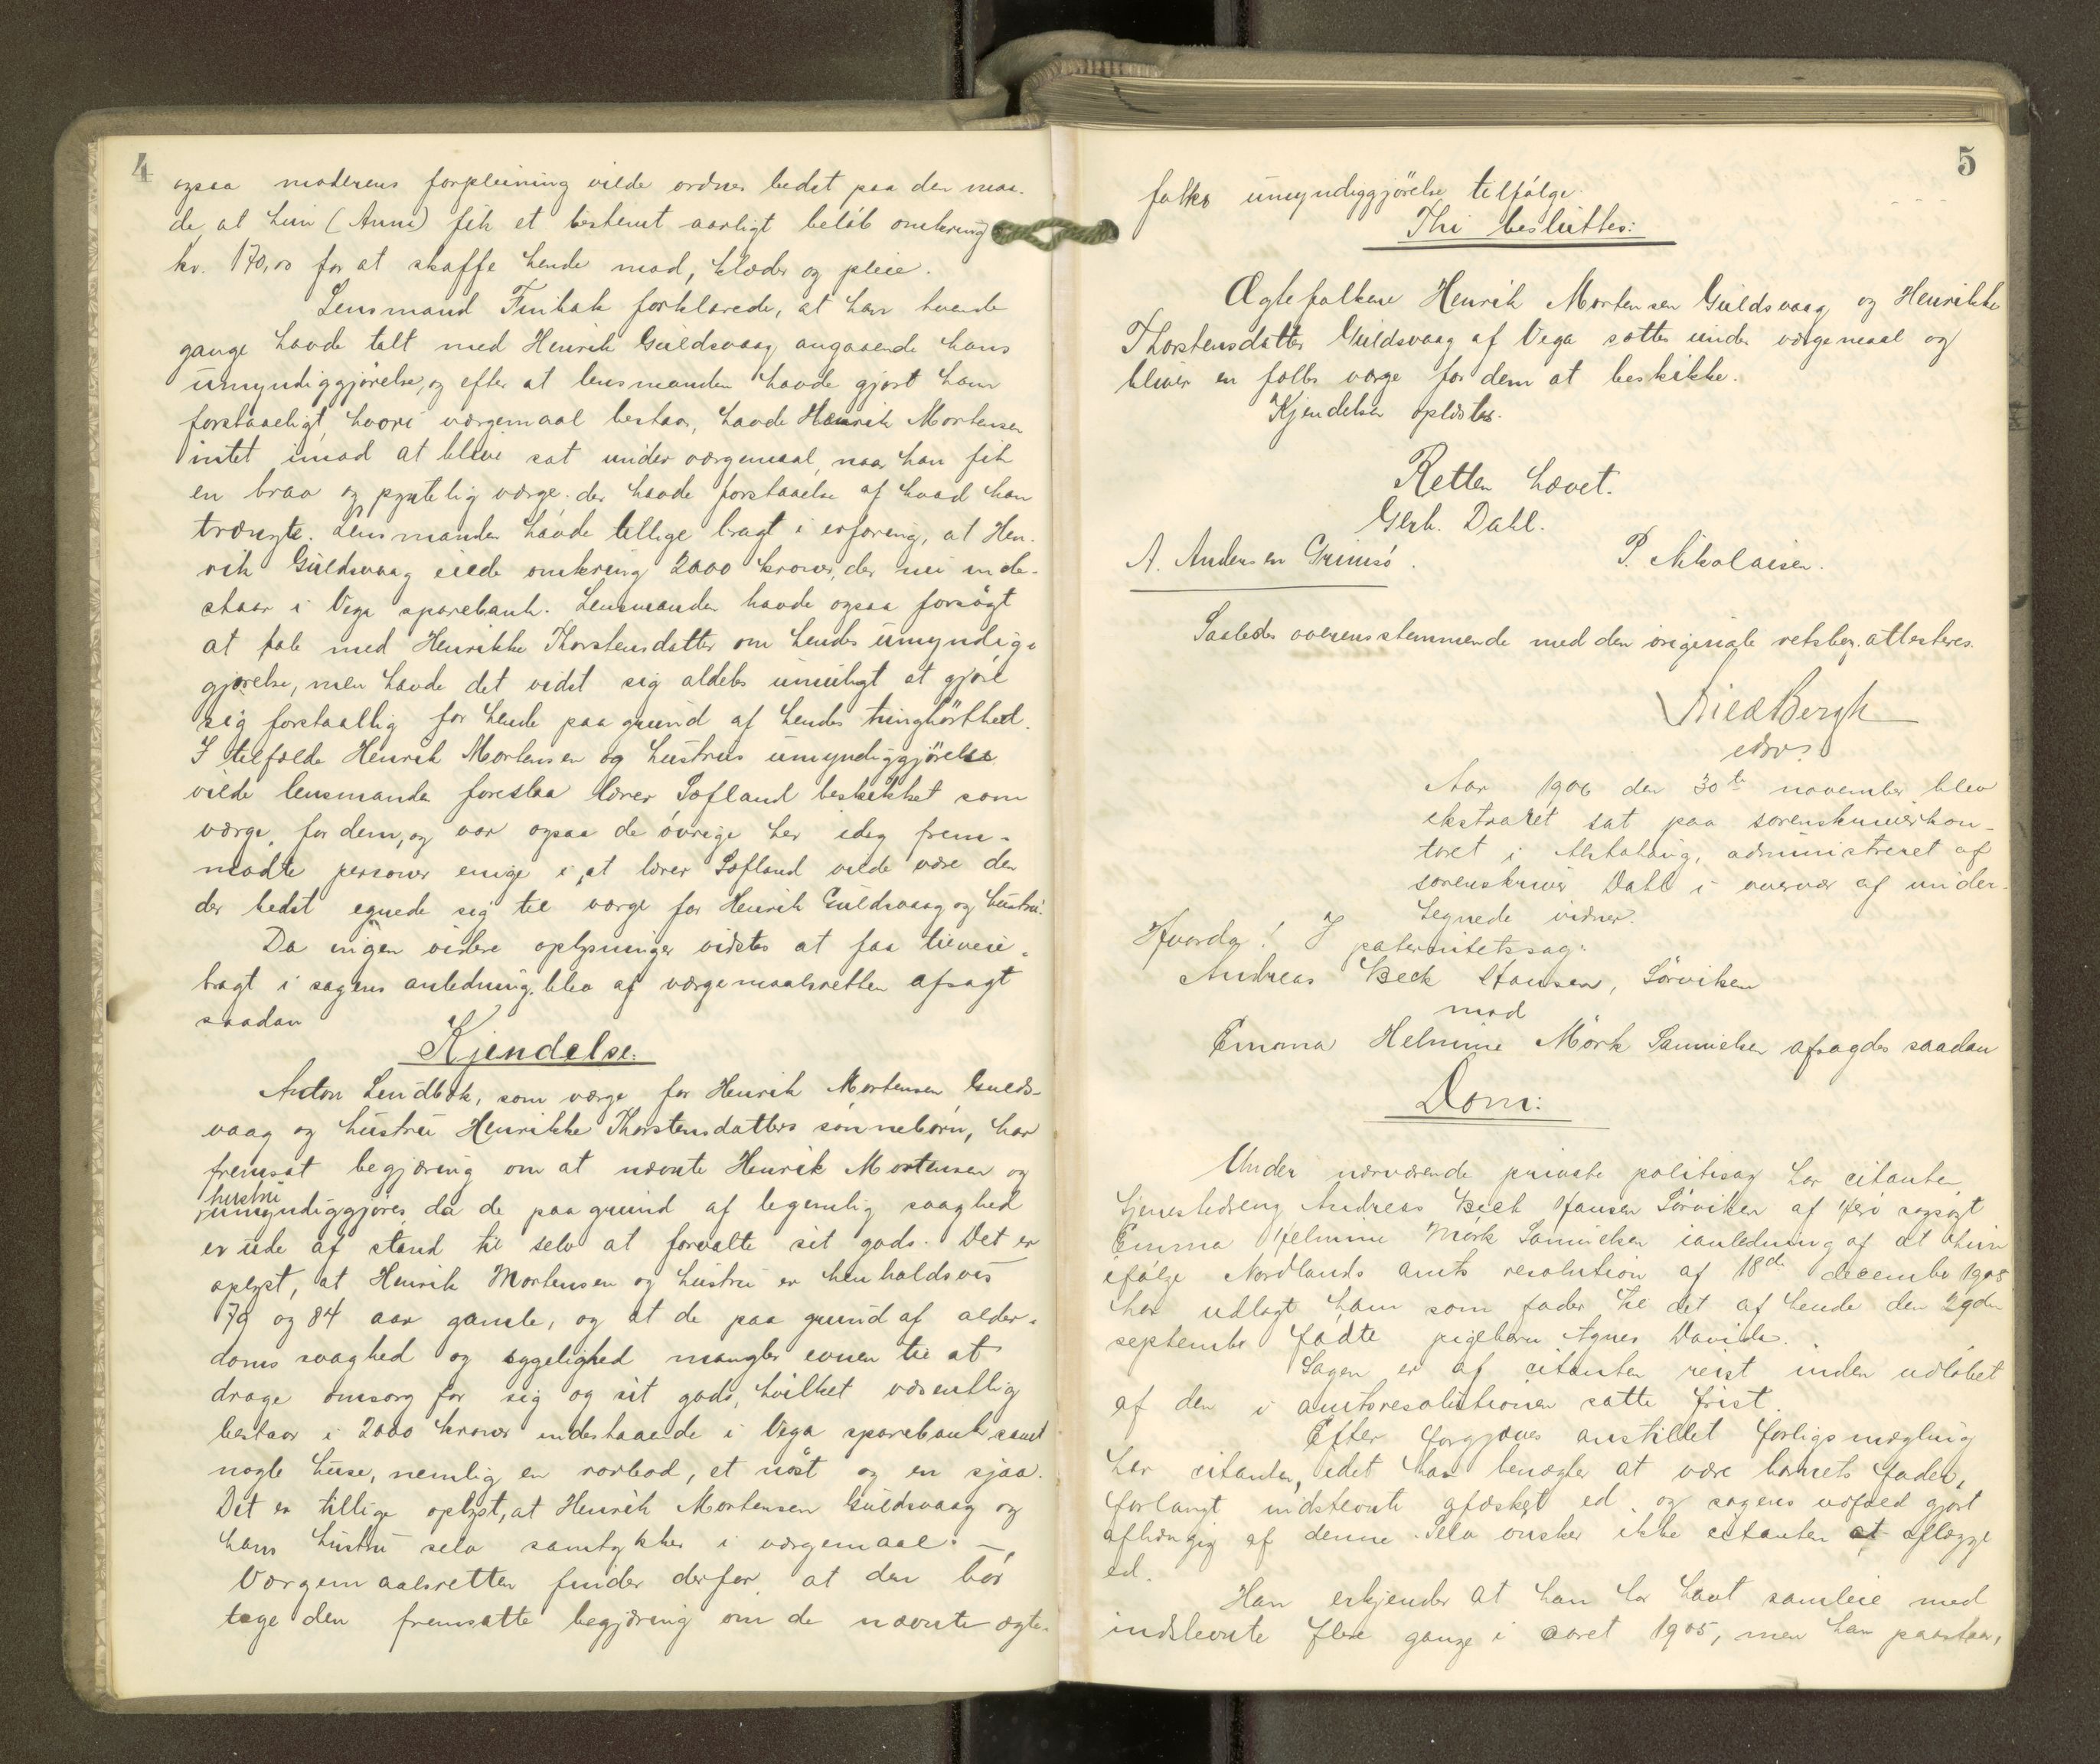 4
ogsaa moderens forpleining vilde ordnes bedst paa den maa-
de, at hun (Anne) fik et bestemt aarligt beløb omkring
kr. 170,00 for at skaffe hende mad, klæder og pleie.
Lensmand Finbak forklarede, at han tvende
gange havde talt med Henrik Guldsvaag angaaende hans
umyndiggjørelse, og efter at lensmanden havde gjort ham
forstaaeligt, hvori værgemaal bestaar, havde Henrik Mortensen
intet imod at blive sat under værgemaal, naar han fik
en brav og pyntelig værge. der havde forstaaelse af hvad han
trængte. Lensmanden havde tillige bragt i erfaring, at Hen-
rik Guldsvaag eiede omkring 2000 kroner, der nu inde-
staar i Vega sparebank. Lensmanden havde ogsaa forsøgt
at tale med Henrikke Thorstensdatter om hendes umyndig-
gjørelse, men havde det vidst sig aldeles umuligt at gjøre
sig forstaaelig for hende paa grund af hendes tunghørthed.
I tilfælde Henrik Mortensen og hustrus umyndiggjørelse
vilde lensmanden foreslaa lærer Sæfland beskikket som
værge for dem, og var ogsaa de øvrige her idag frem-
mødte personer enige i, at lærer Sæfland vilde være den
der bedst egnede sig til værge for Henrik Guldsvaag og hustru.
Da ingen videre oplysninger vidstes at faa tilveie-
bragt i sagens anledning, blev af værgemaalsretten afsagt
saadan
Kjendelse:
Anton Lendbak, som værge for Henrik Mortensen Gulds-
vaag og hustru Henrikke Thorstensdatters sønnebørn, har
fremsat begjæring om at nævnte Henrik Mortensen og
hustru
umyndiggjøres da de paa grund af legemlig svaghed
er ude af stand til selv at forvalte sit gods. Det er
oplyst, at Henrik Mortensen og hustru er henholdsvis
79 og 84 aar gamle, og at de paa grund af alder-
doms svaghed og sygelighed mangler evnen til at
drage omsorg for sig og sit gods, hvilket væsentlig
bestaar i 2000 kroner indestaaende i Vega sparebank samt
nogle huse, nemlig en rorbod, et nøst og en sjaa.
Det er tillige oplyst, at Henrik Mortensen Guldsvaag og
hans hustru selv samtykker i værgemaal. —
Værgemaalsretten finder derfor at den bør
tage den fremsatte begjæring om de nævnte ægte-
5
folks umyndiggjørelse tilfølge.
Thi besluttes:
Ægtefolkene Henrik Mortensen Guldsvaag og Henrikke
Thorstensdatter Guldsvaag af Vega sættes under værgemaal og
bliver en fælles værge for dem at beskikke.
Kjendelsen oplæstes.
Retten hævet.
Gerh. Dahl.
A. Andersen Grimsø. P. Nikolaisen.
Saaledes overensstemmende med den originale retsbog. attesteres.
Bergh
edsv.
Aar 1906 den 30te november blev
ekstraret sat paa sorenskriverkon-
toret i Alstahaug, administreret af
sorenskriver Dahl i overvær af under-
tegnede vidner.
Hvorda! I paternitetssag:
Andreas Beck Hansen, Sørviken
mod
Emma Helmine Mørk Samuelsen afsagdes saadan
Dom:
Under nærværende private politisag har citanten
tjenestedreng Andreas Beck Hansen Sørviken af Herø sagsøgt
Emma Helmine Mørk Samuelsen ianledning af at hun
ifølge Nordlands amts resolution af 18de december 1905
har udlagt ham som fader til det af hende den 29de
september fødte pigebarn Agnes Davida.
Sagen er af citanten reist inden udløbet
af den i amtsresolutionen satte frist.
Efter forgjæves anstillet forligsmægling
har citanten, idet han benægter at være barnets fader,
forlangt indstevnte afæsket ed, og sagens udfald gjort
afhængig af denne. Selv ønsker ikke citanten at aflægge
ed.
Han erkjender at han har havt samleie med
indstevnte flere gange i aaret 1905, men han paastaar,